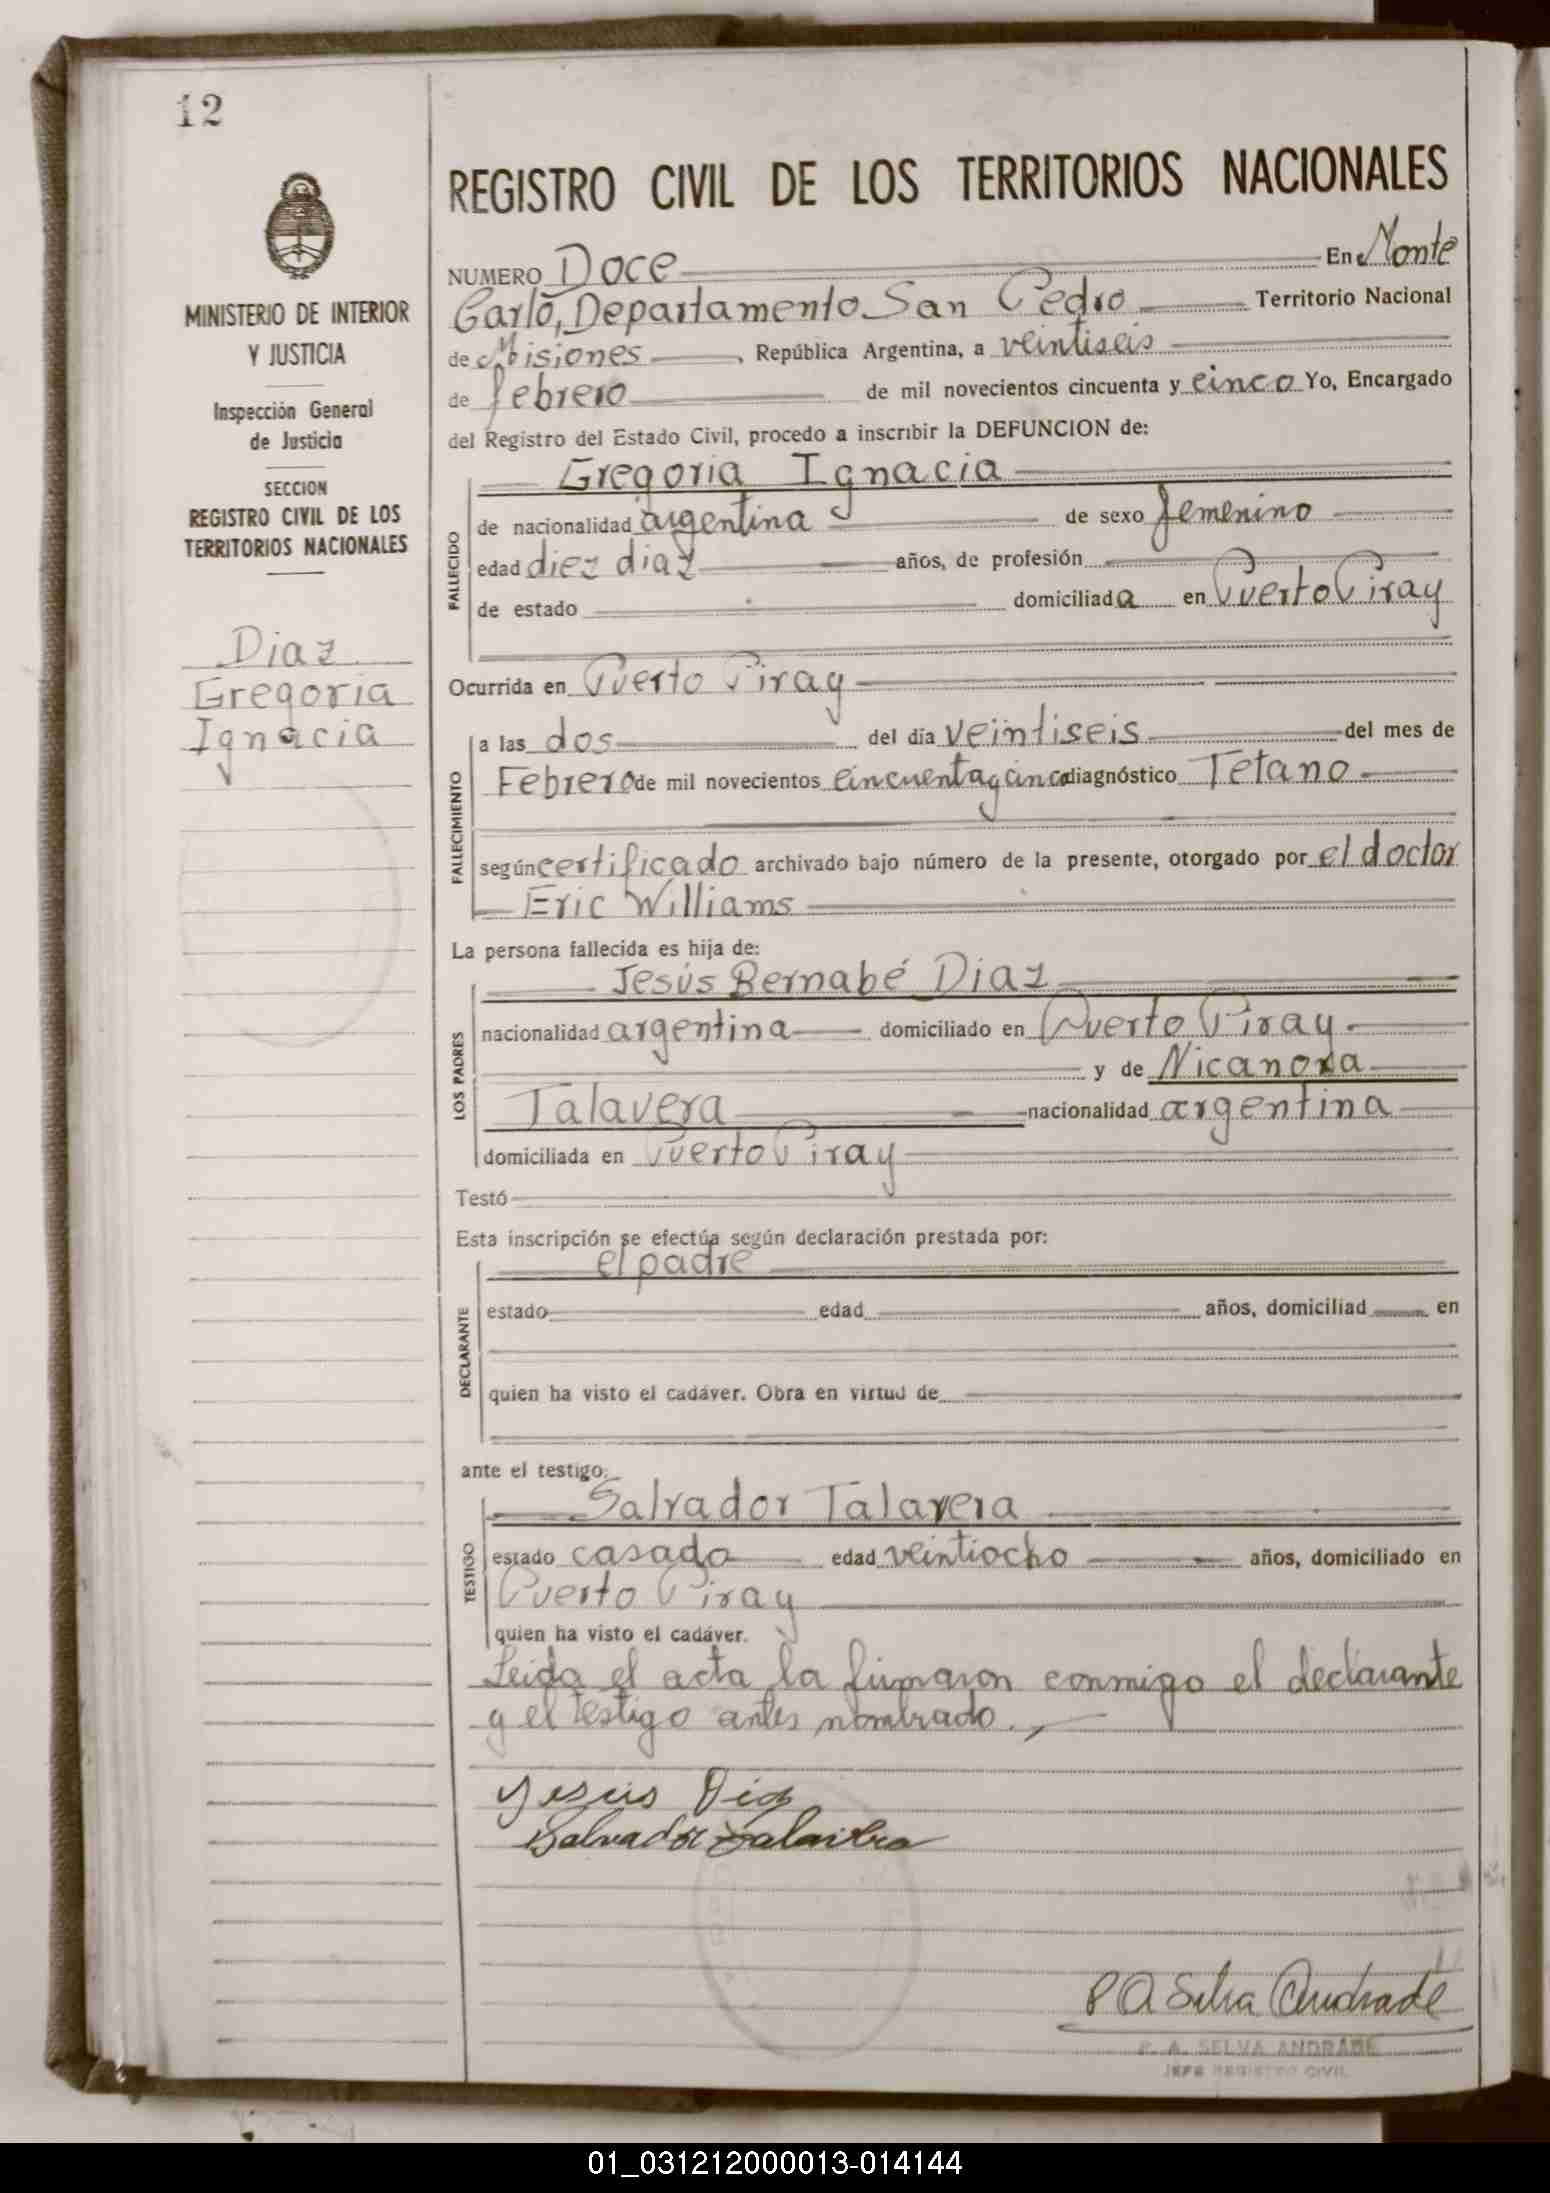 12
MINISTERIO DE INTERIOR
Y JUSTICIA
Inspección General
de Justicia
SECCION
REGISTRO CIVIL DE LOS
TERRITORIOS NACIONALES
Diaz
Gregoria
Ignacia
REGISTRO CIVIL DE LOS TERRITORIOS NACIONALES
NUMERO Doce En Monte
Carlo, Departamento San Pedro Territorio Nacional
de Misiones, República Argentina, a veintiseis
de febrero de mil novecientos cincuenta y cinco Yo, Encargado
del Registro del Estado Civil, procedo a inscribir la DEFUNCION de:
FALLECIDO
Gregoria Ignacia
de nacionalidad argentina de sexo femenino
edad diez diaz años, de profesión
de estado domiciliada en Puerto Piray
Ocurrida en Puerto Piray
FALLECIMIENTO
a las dos del día veintiseis del mes de
Febrero de mil novecientos cincuentaycinco diagnóstico Tetano
según certificado archivado bajo número de la presente, otorgado por el doctor
Eric Williams
La persona fallecida es hija de:
LOS PADRES
Jesús Bernabé Diaz
nacionalidad argentina domiciliado en Puerto Piray
y de Nicanora
Talavera nacionalidad argentina
domiciliada en Puerto Piray
Testó
Esta inscripción se efectúa según declaración prestada por:
DECLARANTE
el padre
estado edad años, domiciliad en
quien ha visto el cadáver. Obra en virtud de
ante el testigo:
TESTIGO
Salvador Talavera
estado casado edad veintiocho años, domiciliado en
Puerto Piray
quien ha visto el cadáver.
Leida el acta la firmaron conmigo el declarante
y el testigo antes nombrado.
Jesus Diaz
Salvador Talavera
P A Selva Andrade
P. A. SELVA ANDRADE
JEFE REGISTRO CIVIL
01_031212000013-014144